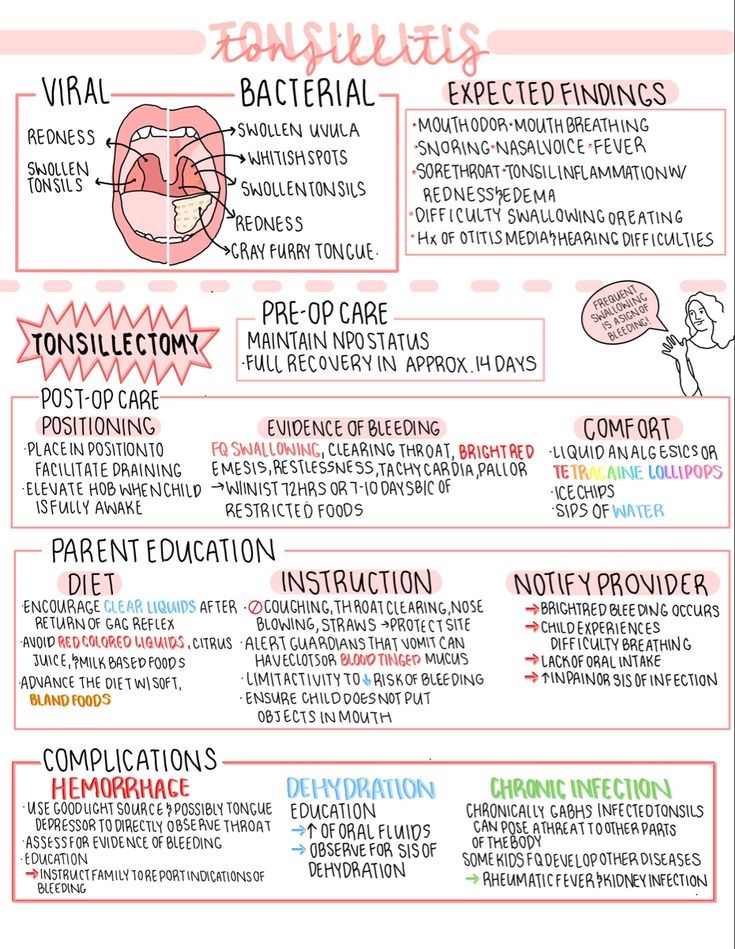 TONSILLITIS
tonsillitis
VIRAL
BACTERIAL
REDNESS
SWOLLEN
TONSILS
SWOLLEN UVULA
WHITISH SPOTS
SWOLLEN TONSILS
REDNESS
GRAY FURRY TONGUE.
EXPECTED FINDINGS
•MOUTH ODOR •MOUTH BREATHING
•SNORING •NASAL VOICE •FEVER
•SORE THROAT •TONSIL INFLAMMATION W/
REDNESS & EDEMA
•DIFFICULTY SWALLOWING OR EATING
•Hx OF OTITIS MEDIA & HEARING DIFFICULTIES
FREQUENT
SWALLOWING
IS A SIGN OF
BLEEDING!
TONSILLECTOMY
PRE-OP CARE
MAINTAIN NPO STATUS
•FULL RECOVERY IN APPROX. 14 DAYS
POST-OP CARE
POSITIONING
•PLACE IN POSITION TO
FACILITATE DRAINING
•ELEVATE HOB WHEN CHILD
IS FULLY AWAKE
EVIDENCE OF BLEEDING
FQ SWALLOWING, CLEARING THROAT, BRIGHT RED
EMESIS, RESTLESSNESS, TACHYCARDIA, PALLOR
→ W/IN 1ST 72HRS OR 7-10 DAYS B/C OF
RESTRICTED FOODS
COMFORT
•LIQUID ANALGESICS OR
TETRACAINE LOLLIPOPS
•ICE CHIPS
•SIPS OF WATER
PARENT EDUCATION
DIET
•ENCOURAGE CLEAR LIQUIDS AFTER
RETURN OF GAG REFLEX
•AVOID RED COLORED LIQUIDS, CITRUS
JUICE, & MILK BASED FOODS
•ADVANCE THE DIET W/ SOFT,
BLAND FOODS
INSTRUCTION
•🚫COUGHING, THROAT CLEARING, NOSE
BLOWING, STRAWS → PROTECT SITE
•ALERT GUARDIANS THAT VOMIT CAN
HAVE CLOTS OR BLOOD TINGED MUCUS
•LIMIT ACTIVITY TO ↓ RISK OF BLEEDING
•ENSURE CHILD DOES NOT PUT
OBJECTS IN MOUTH
NOTIFY PROVIDER
→ BRIGHT RED BLEEDING OCCURS
→ CHILD EXPERIENCES
DIFFICULTY BREATHING
→ LACK OF ORAL INTAKE
→ ↑ IN PAIN OR S/S OF INFECTION
COMPLICATIONS
HEMORRHAGE
•USE GOOD LIGHT SOURCE & POSSIBLY TONGUE
DEPRESSOR TO DIRECTLY OBSERVE THROAT
•ASSESS FOR EVIDENCE OF BLEEDING
•EDUCATION
→ INSTRUCT FAMILY TO REPORT INDICATIONS OF
BLEEDING
DEHYDRATION
EDUCATION
→ ↑ OF ORAL FLUIDS
→ OBSERVE FOR S/S OF
DEHYDRATION
CHRONIC INFECTION
CHRONICALLY GABHS INFECTED TONSILS
CAN POSE A THREAT TO OTHER PARTS
OF THE BODY
SOME KIDS FQ DEVELOP OTHER DISEASES
→ RHEUMATIC FEVER & KIDNEY INFECTION